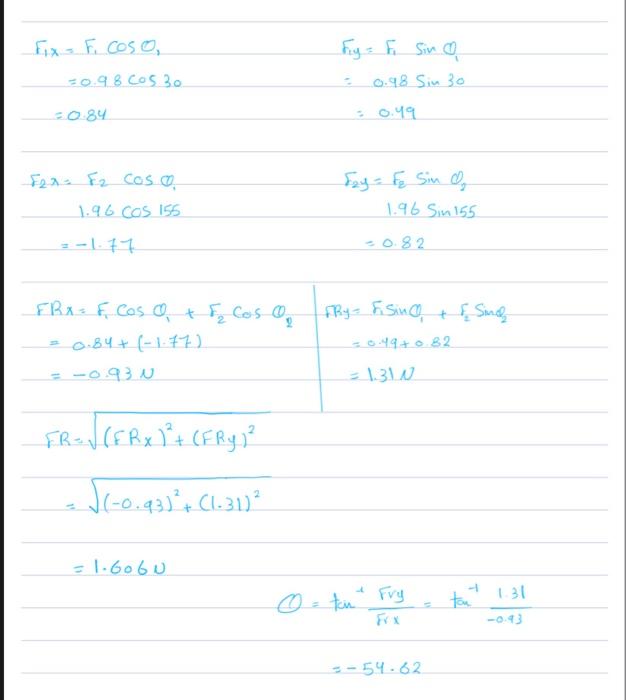 F₁x = F₁ Cos θ₁
= 0.98 Cos 30
= 0.84
F₁y = F₁ Sin θ₁
= 0.98 Sin 30
= 0.49
F₂x = F₂ Cos θ₁
1.96 Cos 155
= -1.77
F₂y = F₂ Sin θ₂
1.96 Sin 155
= 0.82
FRx = F₁ Cos θ₁ + F₂ Cos θ₂
= 0.84 + (-1.77)
= -0.93 N
FRy = F₁ Sin θ₁ + F₂ Sin θ₂
= 0.49 + 0.82
= 1.31 N
FR = √(FRx)² + (FRy)²
= √(-0.93)² + (1.31)²
= 1.606 N
θ = tan⁻¹ Fry/Frx = tan⁻¹ 1.31/-0.93
= -54.62